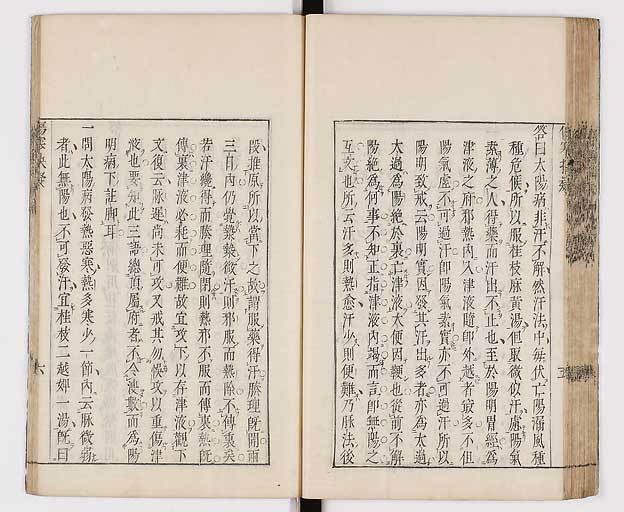 答曰太陽病非汗不解然汗法中每伏亡陽漏風種
種危候所以服桂枝麻黃湯但取微似汗慮陽氣
素薄之人得藥而汗出不止也至於陽明胃經為
津液之府邪熱內入津液隨即外越者最多不但
陽氣虛不可過汗即陽氣素實亦不可過汗所以
陽明致戒云陽明實因發其汗出多者亦為太過
太過為陽絕於裏亡津液大便因鞕也從前不解
陽絕為何事不知正指津液內竭而言即無陽之
互文也所云汗多則熱愈汗少則便難乃脈法後
段推原所以當下之故謂服藥得汗腠理既開兩
三日內仍當漐漐微汗則邪服而熱除不傳裏矣
若汗纔得而腠理隨閉則熱邪不服而傳裏熱既
傳裏津液必耗而便難故宜攻下以存津液觀下
文復云脈遲尚未可攻又戒其勿悞攻以重傷津
液也要知此三語總頂屬府者不令溲數而為陽
明病下註脚耳
一問太陽病發熱惡寒熱多寒少一節內云脈微弱
者此無陽也不可發汗宜桂枝二越婢一湯既曰
六